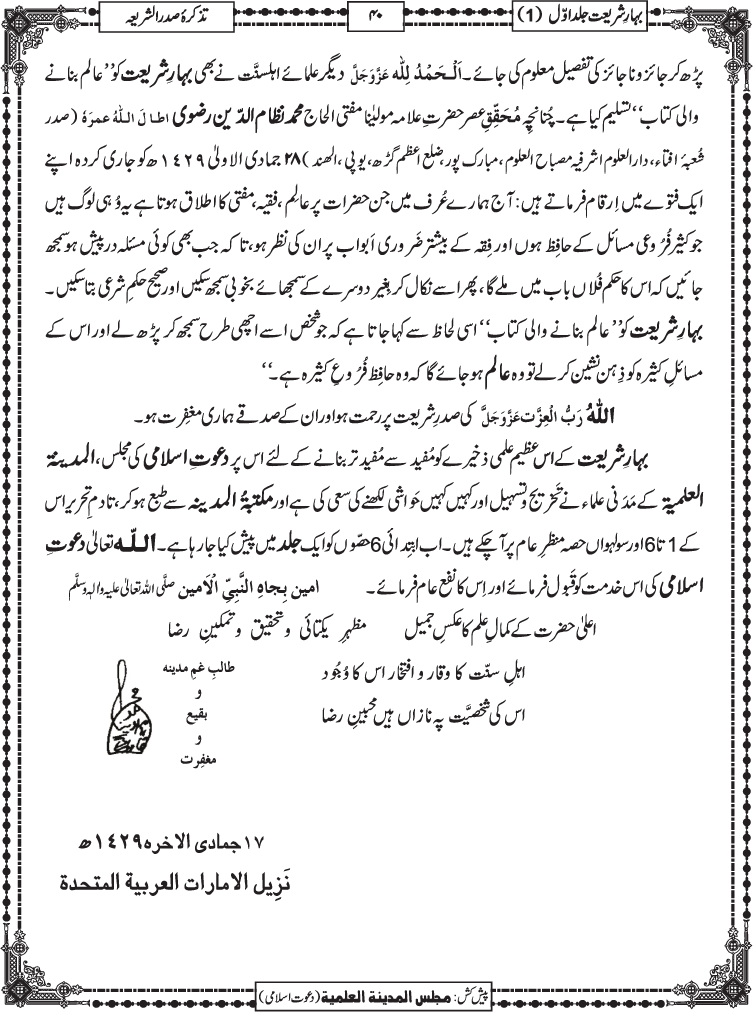 بہارِشریعت جلد اوّل (1)
۴۰
تذکرۂ صدر الشریعہ
پڑھ کر جائز و ناجائز کی تفصیل معلوم کی جائے۔ اَلْحَمْدُ لِلّٰہ عَزَّوَجَلَّ دیگر علمائے اہلسنّت نے بھی بہارِ شریعت کو ’’عالم بنانے
والی کتاب‘‘ تسلیم کیا ہے۔ چُنانچِہ مُحَقِّقِ عصر حضرتِ علامہ مولیٰنا مفتی الحاج محمد نظام الدّین رضوی اطالَ اللہُ عمرَہٗ (صدر
شُعبۂ افتاء، دارالعلوم اشرفیہ مصباح العلوم، مبارک پور، ضلع اعظم گڑھ، یوپی، الھند) ۲۸ جمادی الاولیٰ ۱۴۲۹ھ کو جاری کردہ اپنے
ایک فتوے میں اِرقام فرماتے ہیں: آج ہمارے عُرف میں جن حضرات پر عالم، فقیہ، مفتی کا اطلاق ہوتا ہے یہ وُہی لوگ ہیں
جو کثیر فُرُوعی مسائل کے حافِظ ہوں اور فِقہ کے بیشتر ضَروری اَبواب پر ان کی نظر ہو، تا کہ جب بھی کوئی مسئلہ در پیش ہو سمجھ
جائیں کہ اس کا حکم فُلاں باب میں ملے گا، پھر اسے نکال کر بِغیر دوسرے کے سمجھائے بخوبی سمجھ سکیں اور صحیح حکمِ شرعی بتا سکیں۔
بہارِ شریعت کو ’’عالم بنانے والی کتاب‘‘ اسی لحاظ سے کہا جاتا ہے کہ جو شخص اسے اچھی طرح سمجھ کر پڑھ لے اور اس کے
مسائلِ کثیرہ کو ذِہن نشین کر لے تو وہ عالم ہو جائے گا کہ وہ حافِظِ فُرُوعِ کثیرہ ہے۔‘‘
اللہُ رَبُّ الْعِزَّت عَزَّوَجَلَّ کی صدرِ شریعت پر رحمت ہو اور ان کے صدقے ہماری مغفِرت ہو۔
بہارِ شریعت کے اس عظیم علمی ذخیرے کو مُفید سے مُفید تر بنانے کے لئے اس پر دعوتِ اسلامی کی مجلس، المدینۃ
العلمیۃ کے مَدَنی علماء نے تَخریج و تسہیل اور کہیں کہیں حَواشی لکھنے کی سعی کی ہے اور مکتبۃُ المدینہ سے طبع ہوکر، تادمِ تحریر اس
کے 1 تا 6 اور سولہواں حصہ منظرِ عام پر آچکے ہیں۔ اب ابتدائی 6 حصّوں کو ایک جلد میں پیش کیا جا رہا ہے۔ اللہ تعالیٰ دعوتِ
اسلامی کی اس خدمت کو قَبول فرمائے اور اِس کا نفع عام فرمائے۔ امین بِجاہِ النَّبِیِّ الْاَمین صلَّی اللہ تعالیٰ علیہ واٰلہٖ وسلَّم
اعلیٰ حضرت کے کمالِ علم کا عکسِ جمیل مظہرِ یکتائی و تحقیق و تمکینِ رضا
اہلِ سنّت کا وقار و افتخار اس کا وُجُود
اس کی شخصیَّت پہ نازاں ہیں محبینِ رضا
طالبِ غمِ مدینہ
و
بقیع
و
مغفِرت
۱۷ جمادی الاخرہ ۱۴۲۹ھ
نَزِیل الامارات العربیۃ المتحدۃ
پیش کش: مجلس المدینۃ العلمیۃ (دعوت اسلامی)